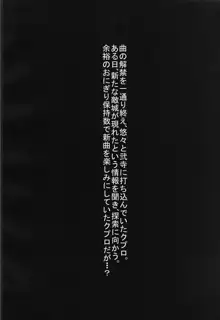 曲の解禁を一通り終え、悠々と弐寺に打ち込んでいたクプロ。
ある日、新たな敵城が現れたという情報を聞き、探索に向かう。
余裕のおにぎり保持数で新曲を楽しみにしていたクプロだが…?